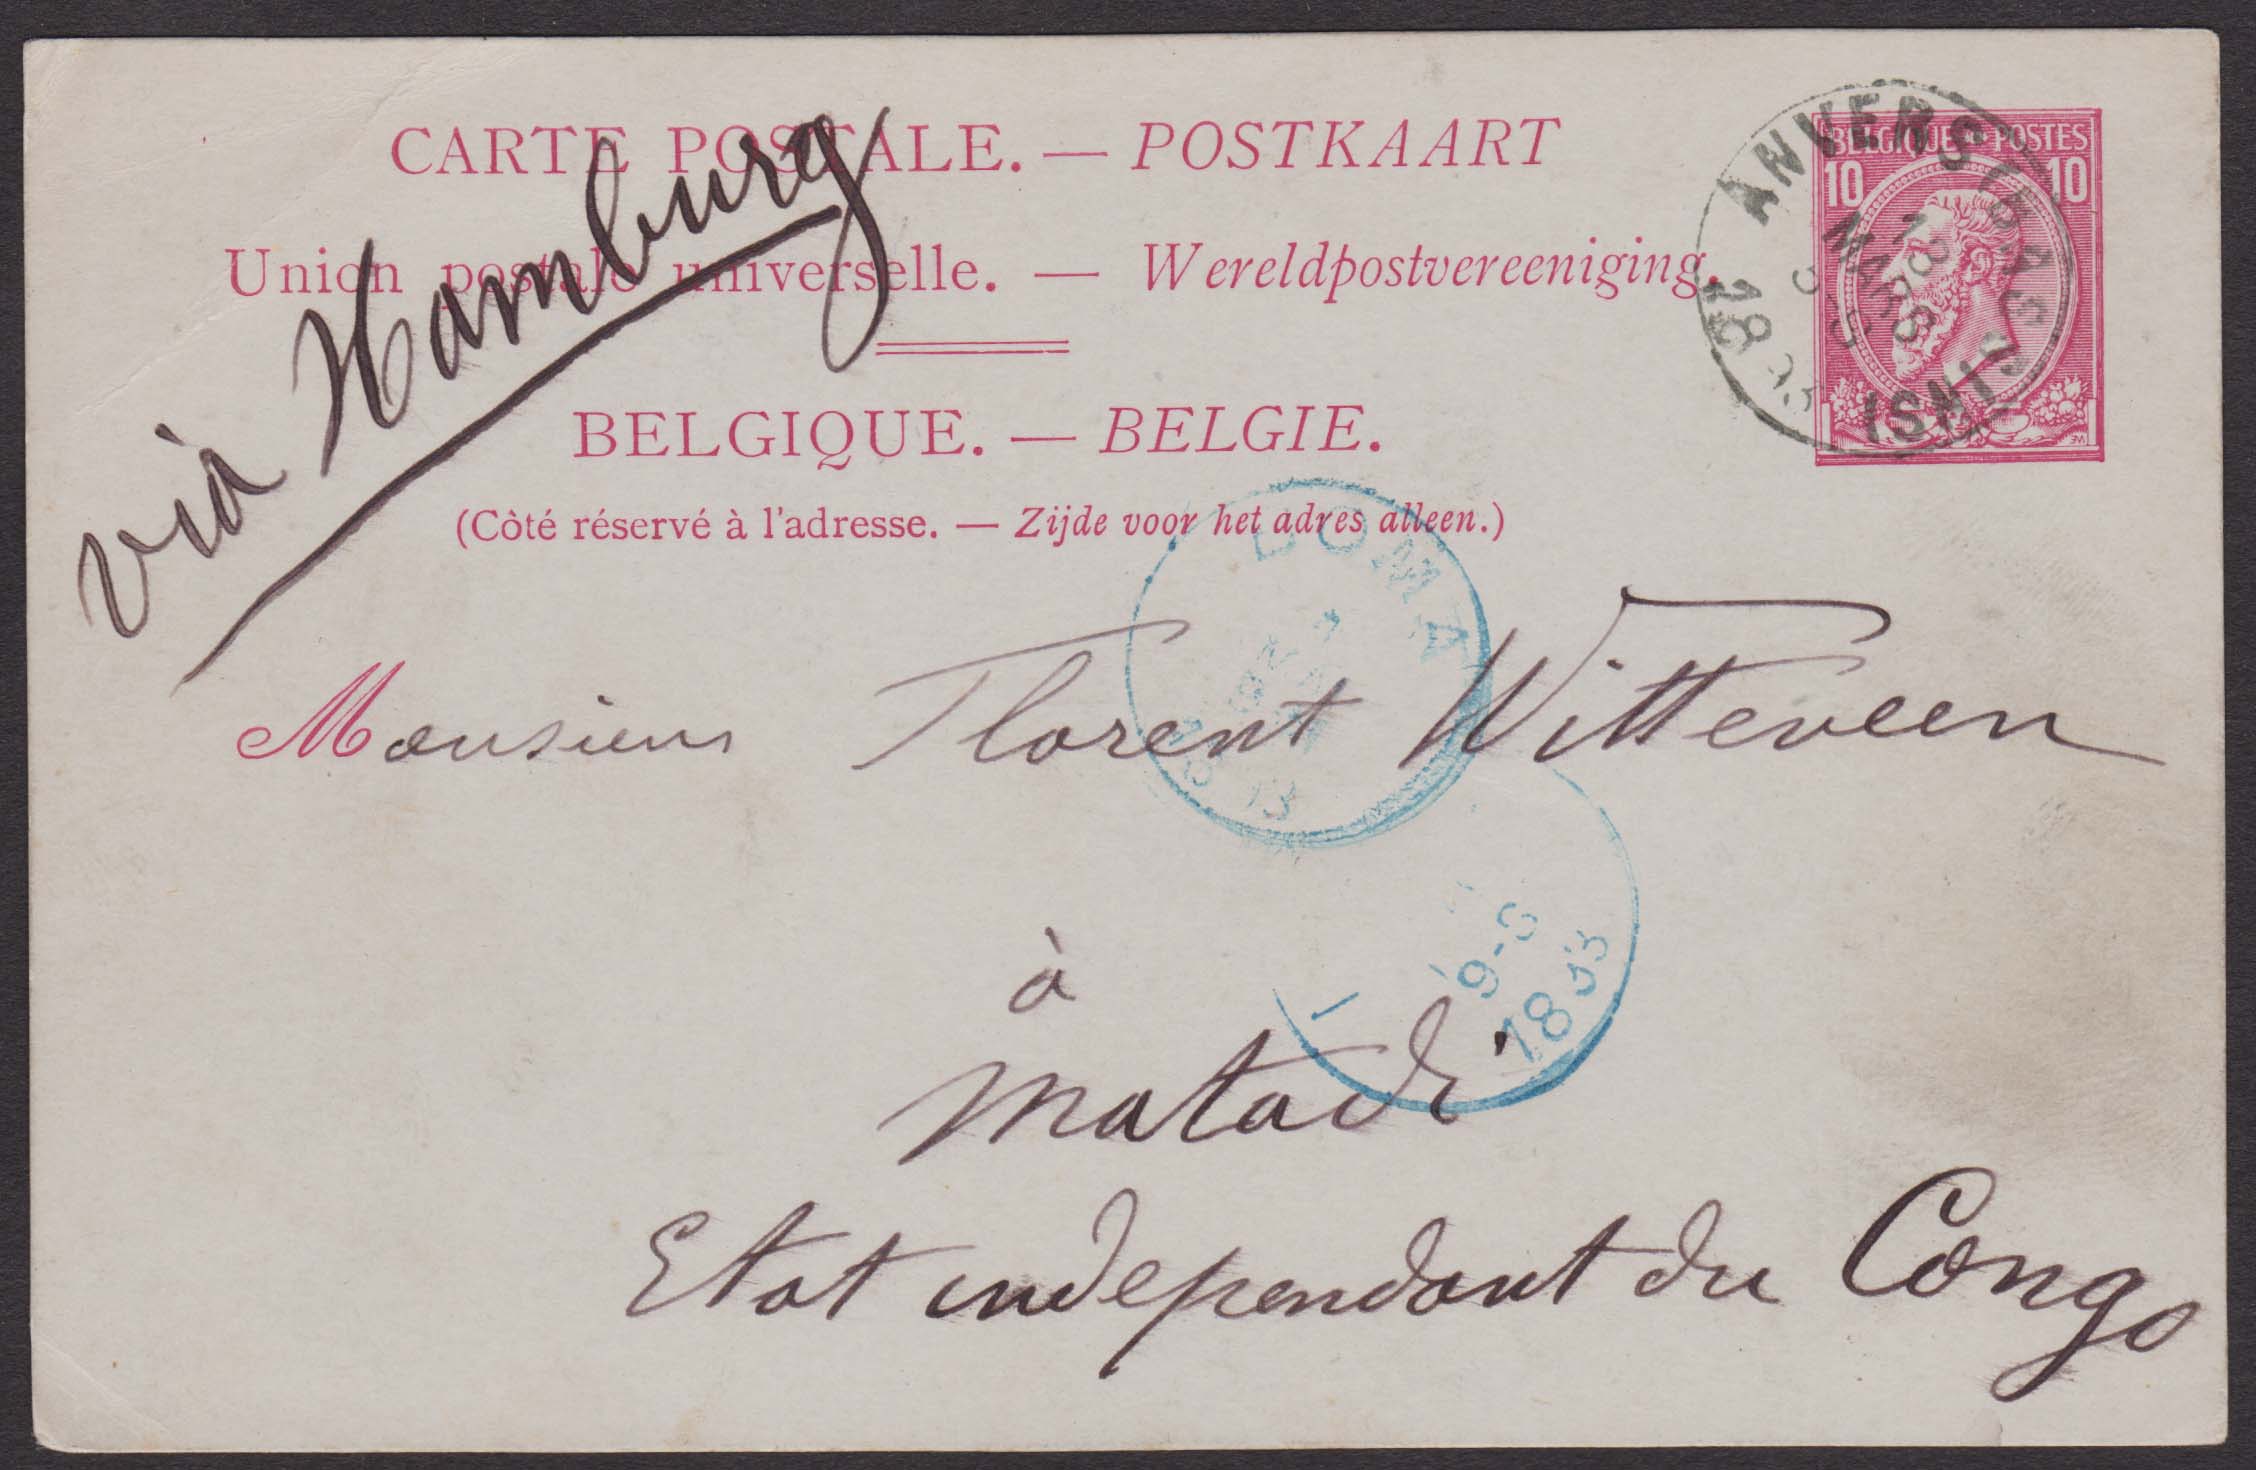 CARTE POSTALE. — POSTKAART
Union postale universelle. — Wereldpostvereeniging.
BELGIQUE. — BELGIE.
(Côté réservé à l'adresse. — Zijde voor het adres alleen.)
BELGIQUE POSTES
10 10
ANVERS
18 93
via Hamburg
BOMA
Monsieur Florent Witteveen
à
Matadi
Etat indépendant du Congo